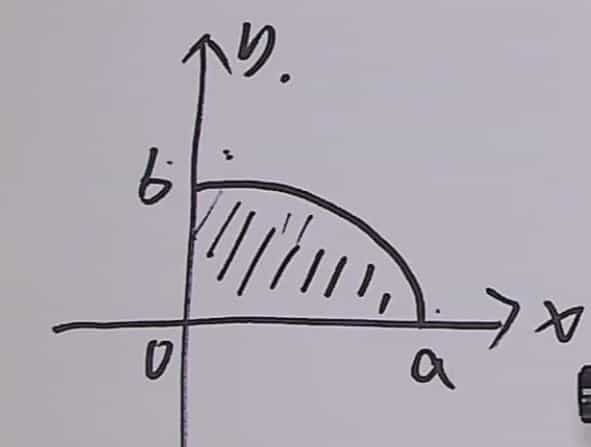 y
b
0
a
x